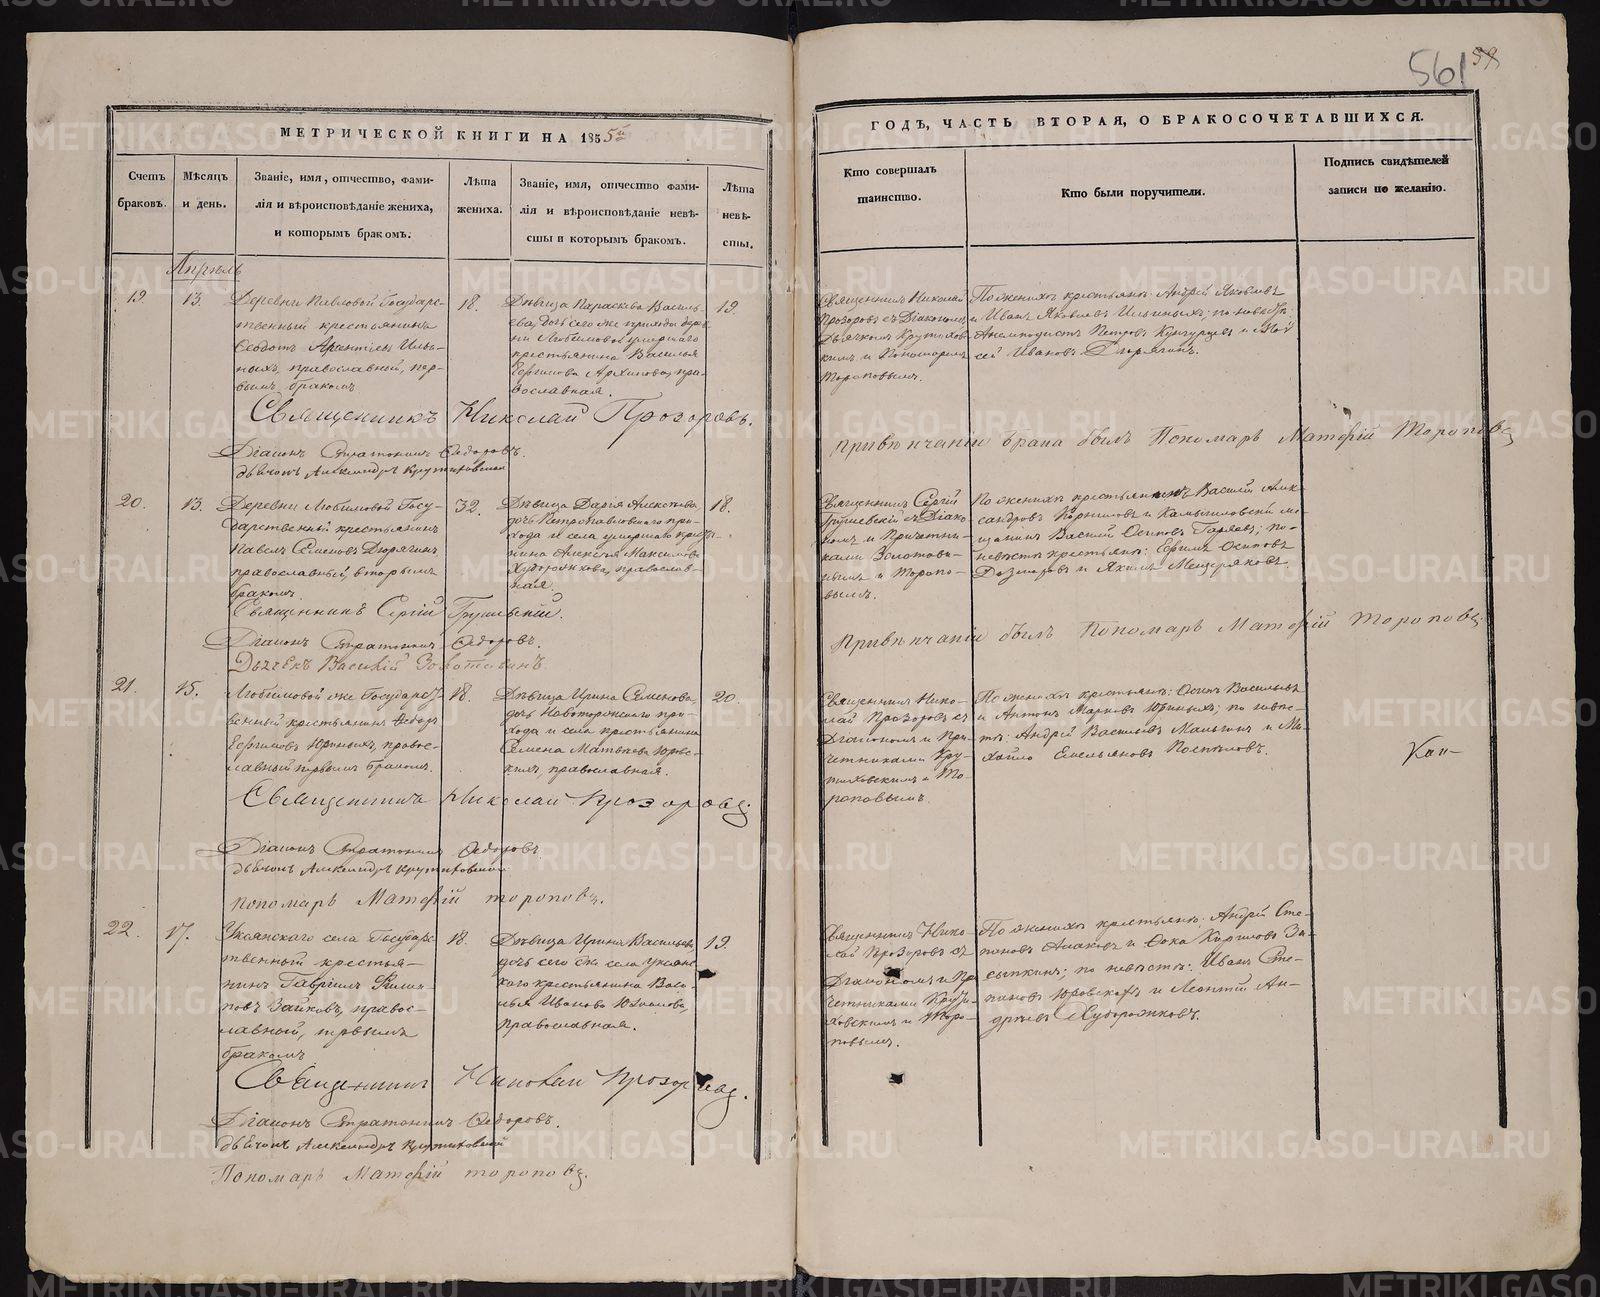 561 58
МЕТРИЧЕСКОЙ КНИГИ НА 1855й
ГОДЪ, ЧАСТЬ ВТОРАЯ, О БРАКОСОЧЕТАВШИХСЯ.
Счетъ браковъ.
Мѣсяцъ и день.
Званіе, имя, отчество, фами-
лія и вѣроисповѣданіе жениха,
и которымъ бракомъ.
Лѣта
жениха.
Званіе, имя, отчество фами-
лія и вѣроисповѣданіе невѣ-
сты и которымъ бракомъ.
Лѣта
невѣ-
сты.
Кто совершалъ
таинство.
Кто были поручители.
Подпись свидѣтелей
записи по желанію.
Апрѣль
19.
13.
Деревни Павловой Государс-
твенный крестьянинъ
Ѳеодотъ Арентіевъ Ильи-
ныхъ, православной, пер-
вымъ бракомъ
18.
Дѣвица Параскева Василь-
ева, дочь сего же прихода дерев-
ни Любимовой умершаго
крестьянина Василья
Архипова, пра-
вославная.
19.
Священникъ Николай
Прозоровъ съ Діакономъ,
Дьячкомъ Крутихов-
кимъ и Пономаремъ
Тороповымъ.
По женихѣ крестьяне: Андрей Яковлевъ
и Иванъ Яковлевъ Ильиныхъ; по невѣстѣ:
Анемподистъ Петровъ Кунгурцевъ и Мой
сей Ивановъ Дюрягинъ.
Священникъ Николай Прозоровъ.
Діаконъ Стратоникъ Ѳедоровъ.
Дьячокъ Александръ Крутиховской
При вѣнчаніи брака былъ Пономарь Матѳій Тороповъ
20.
13.
Деревни Любимовой Госу-
дарственный крестьянинъ
Павелъ Семеновъ Дюрягинъ
православный, вторымъ
бракомъ.
32.
Дѣвица Дарія Алексѣева
дочь Петропавловскаго при-
хода и села умершаго крестья-
нина Алексѣя Максимова
Худорожкова, православ-
ная.
18.
Священникъ Сергій
Грушевскій съ Діако-
номъ и Причетни-
ками Золотави-
нымъ и Торопо-
вымъ.
По женихѣ крестьянинъ Василій Алек-
сандровъ Корниловъ и Камышловскій мѣ-
щанинъ Василій Осиповъ Гаряевъ; по-
невѣстѣ крестьяне: Ефимъ Осиповъ
Дозморовъ и Якимъ Мещеряковъ.
Священникъ Сергій Грушевскій.
Діаконъ Стратоникъ Ѳедоровъ.
Дьячекъ Василій Золотавинъ
При вѣнчаніи былъ Пономарь Матѳій Тороповъ
21.
15.
Любимовой же Государст-
венный крестьянинъ Ѳедоръ
Ефимовъ Юриныхъ, правос-
лавный первымъ бракомъ.
18.
Дѣвица Ирина Семенова,
дочь Новоторжскаго при-
хода и села крестьянина
Семена Матвѣева Юровс-
кихъ, православная.
20.
Священникъ Нико-
лай Прозоровъ съ
Діакономъ и При-
четниками Кру-
тиховскимъ и То-
роповымъ.
По женихѣ крестьяне: Осипъ Васильевъ
и Антонъ Марковъ Юриныхъ; по невѣс-
тѣ: Андрей Васильевъ Манькинъ и Ми-
хайло Емельяновъ Поспѣловъ.
Кол-
Священникъ Николай Прозоровъ.
Діаконъ Стратоникъ Ѳедоровъ.
Дьячокъ Александръ Крутиховской
Пономарь Матѳій Тороповъ.
22.
17.
Уксянскаго села Государс-
твенный крестья-
нинъ Гавріилъ Филип-
повъ Зайковъ, правос-
лавной, первымъ
бракомъ
18.
Дѣвица Ирина Васильева,
дочь сего же села Уксянс-
каго крестьянина Васи-
лья Иванова
православная.
19.
Священникъ Нико-
лай Прозоровъ съ
Діакономъ и При-
четниками Крути-
ховскимъ и Торо-
повымъ.
По женихѣ крестьяне: Андрей Сте-
пановъ и Ѳока Кириловъ За-
сыпкинъ; по невѣстѣ: Иванъ Сте-
пановъ Юровскихъ и Леонтій Ан-
дреевъ Худорожковъ.
Священникъ Николай Прозоровъ.
Діаконъ Стратоникъ Ѳедоровъ.
Дьячокъ Александръ Крутиховской
Пономарь Матѳій Тороповъ.
METRIKI.GASO-URAL.RU